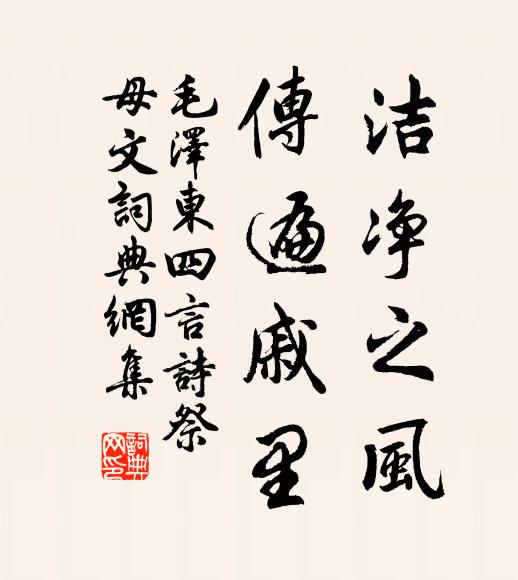 洁净之風
傳遍戚里
毛澤東四言詩祭
母文詞典網集
詞典网印